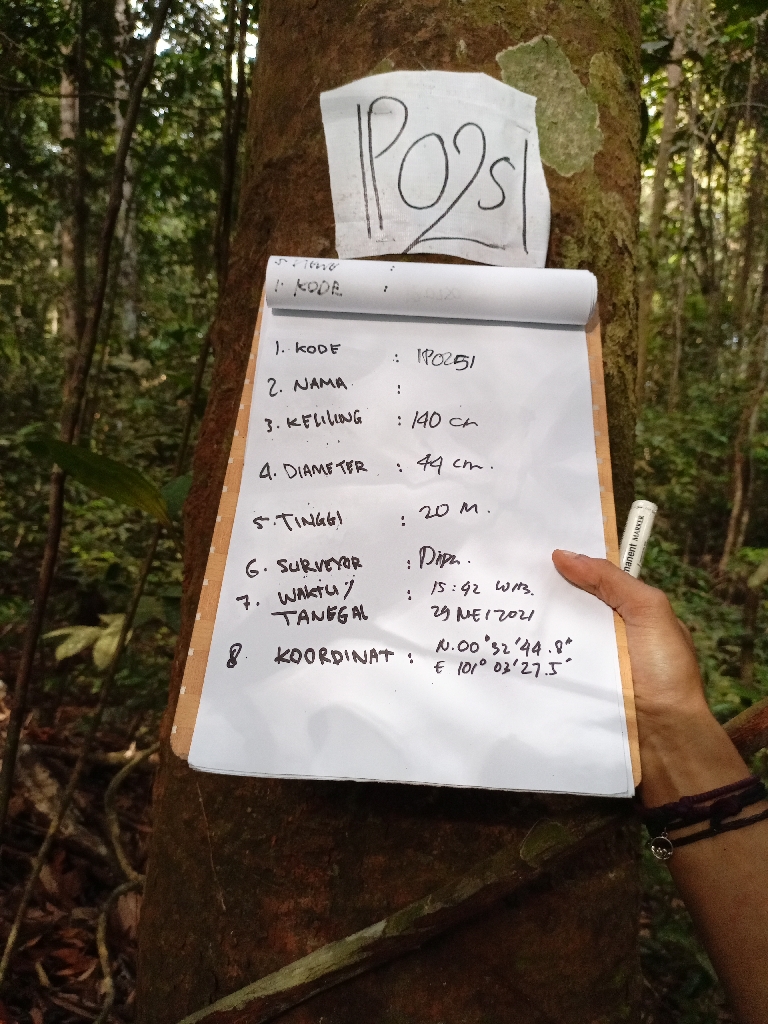 IP02S1
1. KODE :
1. KODE : IP0251
2. NAMA :
3. KELILING : 140 cm
4. DIAMETER : 44 cm.
5. TINGGI : 20 M.
6. SURVEYOR :
7. WAKTU / : 15:42 WIB.
TANGGAL 29 MEI 2021
8 KOORDINAT : N.00°32'44.8"
E 101° 03'27.5"
MARKER